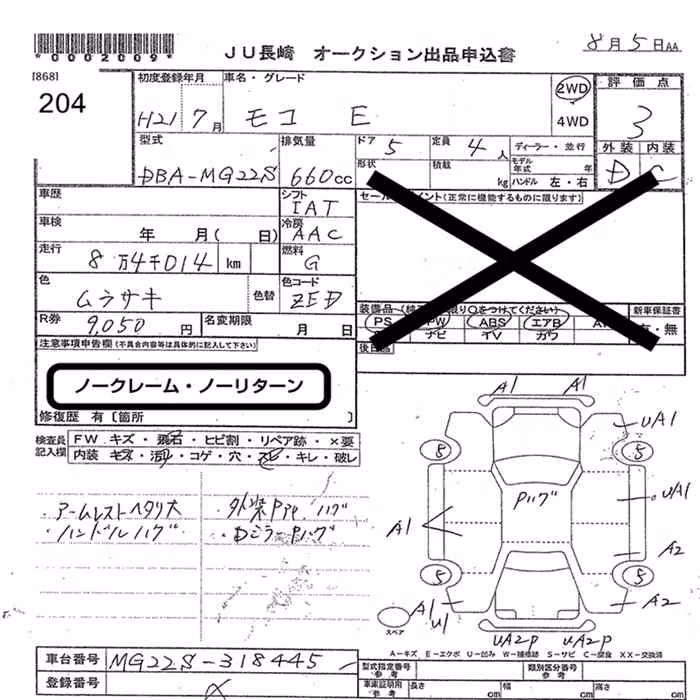 *0002009*
JU長崎 オークション出品申込書
8月5日AA
[868]
204
初度登録年月
H21 7月
車名・グレード
モコ E
2WD
4WD
評価点
3
外装 内装
D C
型式
DBA-MG22S
排気量
660cc
ドア 5
定員 4人
ディーラー・並行
形状
積載 kg
モデル年式 年
ハンドル 左・右
車歴
車検 年 月( 日)
走行 8万4千014 km
色 ムラサキ 色替
シフト IAT
冷房 AAC
燃料 G
色コード ZED
R券 9,050円
名変期限 月 日
注意事項申告欄(不具合内容等は具体的に記入して下さい)
ノークレーム・ノーリターン
修復歴 有 [箇所 ]
(正常に機能するものに限ります)
装備品
をつけてください)
新車保証書
PS PW ABS エアB
ナビ TV カワ
無
後日品
検査員記入欄
FW キズ・飛石・ヒビ割・リペア跡・×要
内装 キズ・汚れ・コゲ・穴・スレ・キレ・破し
・アームレストヘタリ大
・ハンドルハゲ
・Dミラー Pハゲ
A1 A1
UA1
8 5
Pハゲ
UA1
A1
A2
5 5
A1
U1
A2
スペア
UA2P UA2P
A-キズ E-エクボ U-凹み W-補修跡 S-サビ C-腐食 XX-交換済
車台番号 MG22S-318445
登録番号
型式指定番号 参考
類別区分番号 参考
車庫証明用 参考
長さ cm 幅 cm 高さ cm